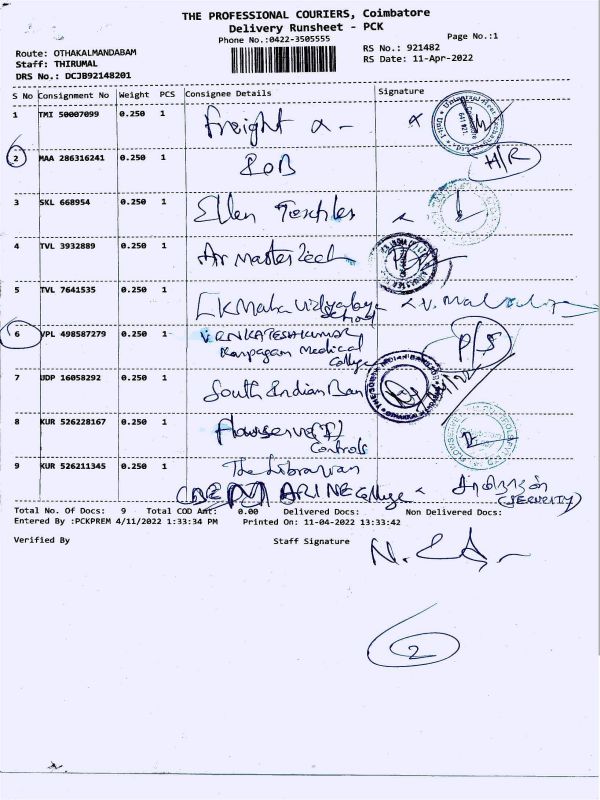 THE PROFESSIONAL COURIERS, Coimbatore
Delivery Runsheet - PCK
Phone No.:0422-3505555
Page No.:1
Route: OTHAKALMANDABAM
RS No.: 921482
Staff: THIRUMAL
RS Date: 11-Apr-2022
DRS No.: DCJB92148201
S No Consignment No Weight PCS Consignee Details Signature
1 TMI 50007099 0.250 1 Freight
2 MAA 286316241 0.250 1 H/R
3 SKL 668954 0.250 1 Ellen Textiles
4 TVL 3932889 0.250 1 Air Master Tech
5 TVL 7641535 0.250 1 School
6 VPL 498587279 0.250 1 VENKATESHKUMAR P/S
Karpagam Medical
College
7 UDP 16058292 0.250 1 South Indian Ban
8 KUR 526228167 0.250 1 Flowserve(I)
Controls
9 KUR 526211345 0.250 1 The Librarian
MARINE College (SECURITY)
Total No. Of Docs: 9 Total COD Amt: 0.00 Delivered Docs: Non Delivered Docs:
Entered By :PCKPREM 4/11/2022 1:33:34 PM Printed On: 11-04-2022 13:33:42
Verified By Staff Signature
2